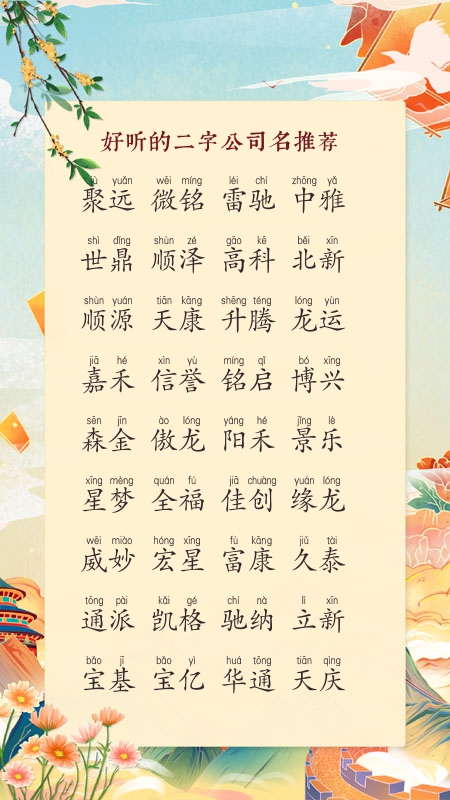 好听的二字公司名推荐
jù yuǎn wēi míng léi chí zhōng yǎ
聚远 微铭 雷驰 中雅
shì dǐng shùn zé gāo kē běi xīn
世鼎 顺泽 高科 北新
shùn yuán tiān kāng shēng téng lóng yùn
顺源 天康 升腾 龙运
jiā hé xìn yù míng qǐ bó xīng
嘉禾 信誉 铭启 博兴
sēn jīn ào lóng yáng hé jǐng lè
森金 傲龙 阳禾 景乐
xīng mèng quán fú jiā chuàng yuán lóng
星梦 全福 佳创 缘龙
wēi miào hóng xīng fù kāng jiǔ tài
威妙 宏星 富康 久泰
tōng pài kǎi gé chí nà lì xīn
通派 凯格 驰纳 立新
bǎo jī bǎo yì huá tōng tiān qìng
宝基 宝亿 华通 天庆